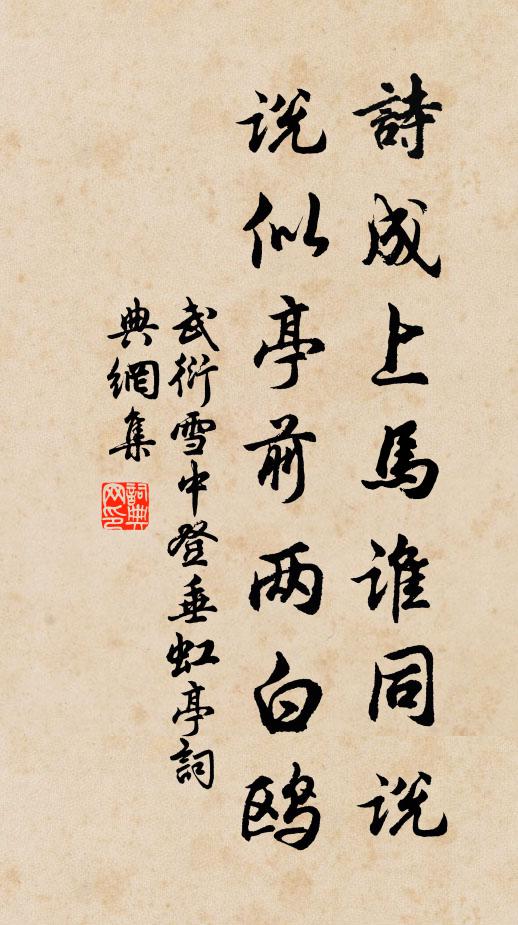 詩成上馬谁同説
説似亭前两白鸥
武衍雪中登垂虹亭詞
典網集
詞典网印